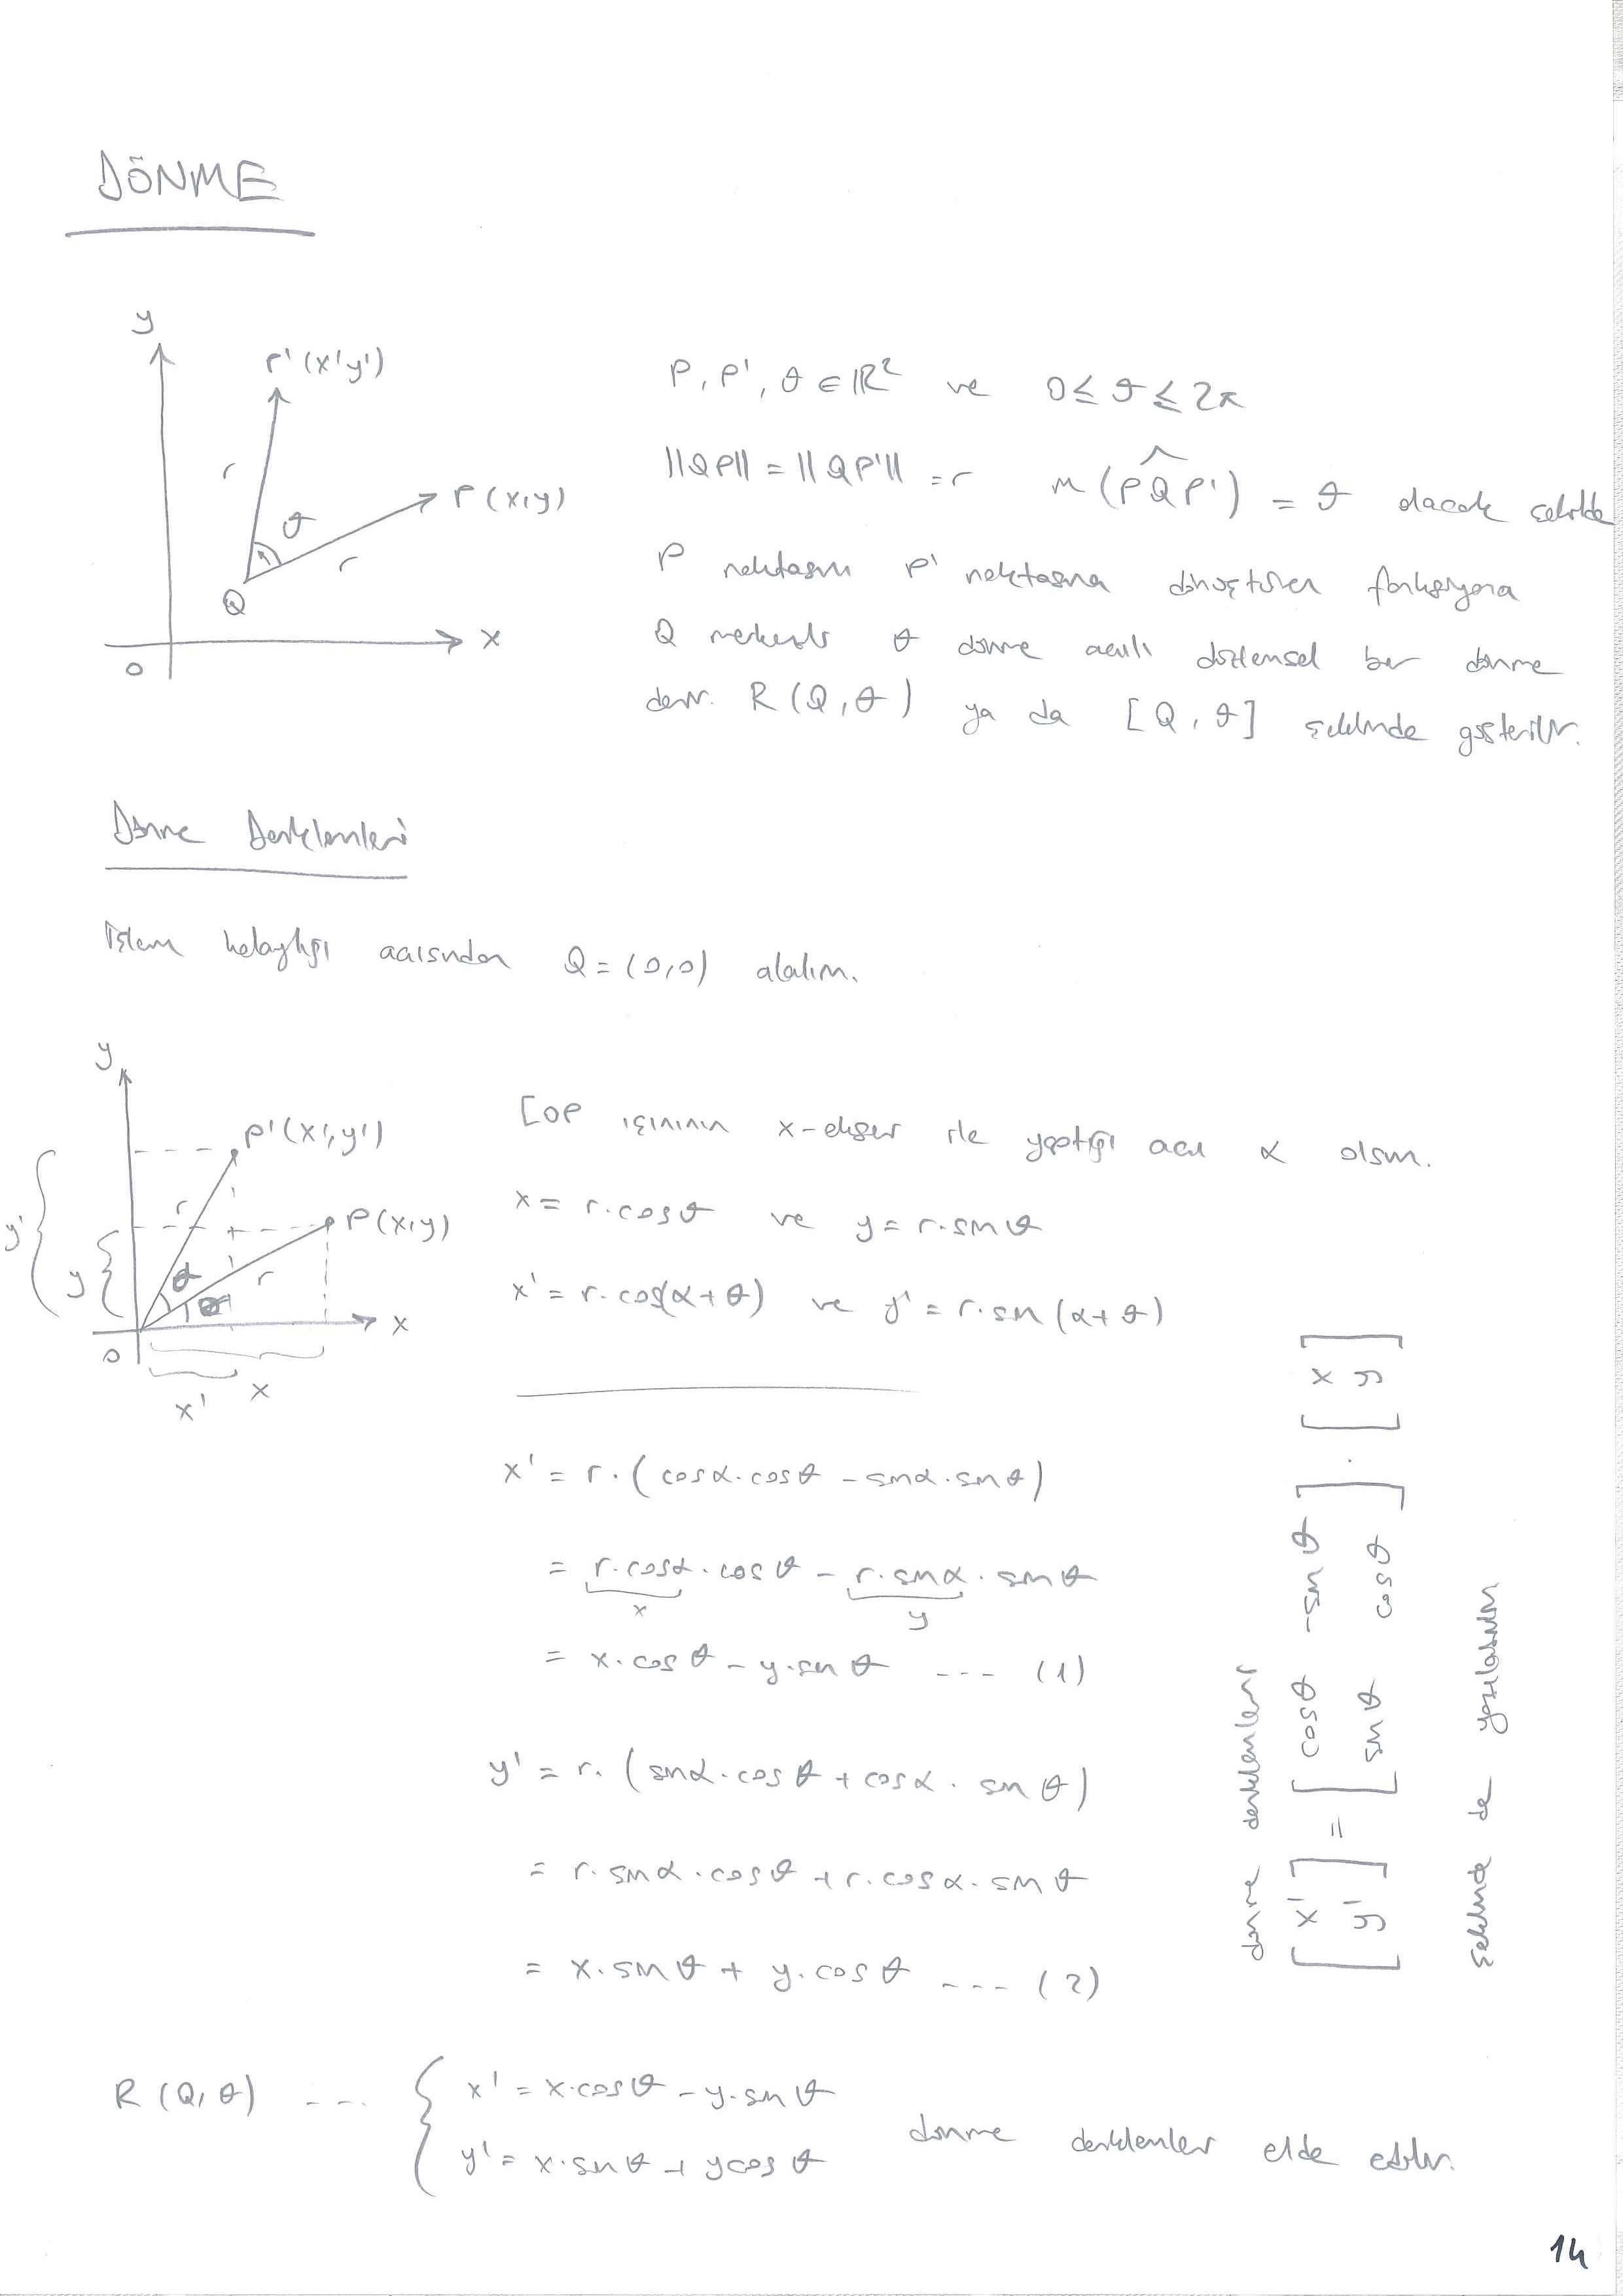 DÖNME
y
P'(x'y')
r
θ
P(x,y)
r
Q
x
0
P, P', θ ∈ ℝ² ve 0 ≤ θ ≤ 2π
||QP|| = ||QP'|| = r m(PQP') = θ olacak şekilde
P noktasını P' noktasına dönüştüren fonksiyona
Q merkezli θ dönme açılı düzlemsel bir dönme
denir. R(Q,θ) ya da [Q,θ] şeklinde gösterilir.
Dönme Denklemleri
İşlem kolaylığı açısından Q = (0,0) alalım.
y
P'(x',y')
r
P(x,y)
y'
y
θ
r
x
0
x'
x
[OP ışınının x-ekseni ile yaptığı açı α olsun.
x = r.cosθ ve y = r.sinθ
x' = r.cos(α+θ) ve y' = r.sin(α+θ)
x' = r.(cosα.cosθ - sinα.sinθ)
= r.cosα.cosθ - r.sinα.sinθ
x y
= x.cosθ - y.sinθ --- (1)
y' = r.(sinα.cosθ + cosα.sinθ)
= r.sinα.cosθ + r.cosα.sinθ
= x.sinθ + y.cosθ --- (2)
dönme denklemleri
[x' y'] = [cosθ -sinθ sinθ cosθ] . [x y]
şeklinde de yazılabilir
R(Q,θ) --- { x' = x.cosθ - y.sinθ
y' = x.sinθ + ycosθ
dönme denklemleri elde edilir.
14